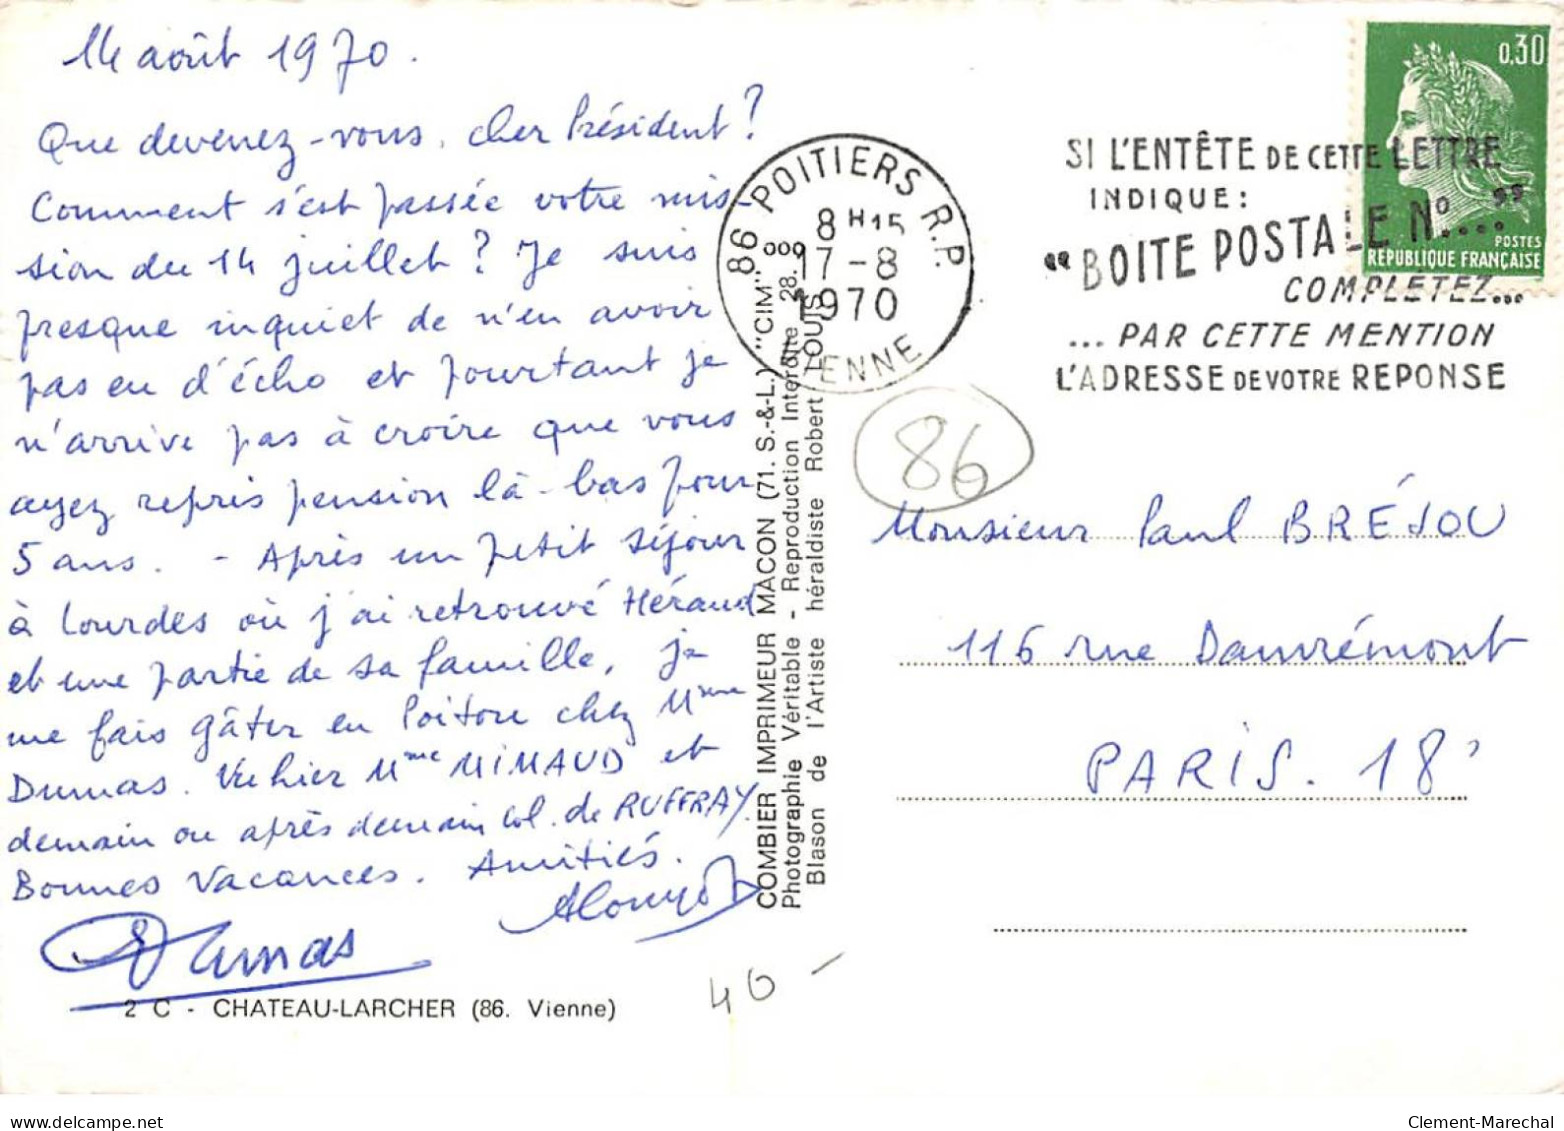 14 août 1970.
Que devenez-vous, cher Président?
Comment s'est passée votre mis-
sion du 14 juillet? Je suis
presque inquiet de n'en avoir
pas eu d'écho et pourtant je
n'arrive pas à croire que vous
ayez repris pension là-bas pour
5 ans. - Après un petit séjour
à Lourdes où j'ai retrouvé Héraud
et une partie de sa famille, je
me fais gâter en Poitou chez Mme
Dumas. Vu hier Mme MIMAUD et
demain ou après demain Col. de RUFFRAY.
Bonnes Vacances. Amitiés.
Dumas
2 C - CHATEAU-LARCHER (86. Vienne)
COMBIER IMPRIMEUR MACON (71. S.-&-L.) "CIM"
Photographie Véritable - Reproduction Interdite 28.9.
Blason de l'Artiste héraldiste Robert LOUIS
86 POITIERS R.P.
8H15
17-8
1970
VIENNE
SI L'ENTÊTE DE CETTE LETTRE
INDIQUE:
"BOITE POSTALE No...."
COMPLETEZ...
... PAR CETTE MENTION
L'ADRESSE DE VOTRE REPONSE
0,30
POSTES
REPUBLIQUE FRANÇAISE
86
Monsieur Paul BRÉJOU
116 rue Damrémont
PARIS. 18e
40 -
www.delcampe.net
Clement-Marechal